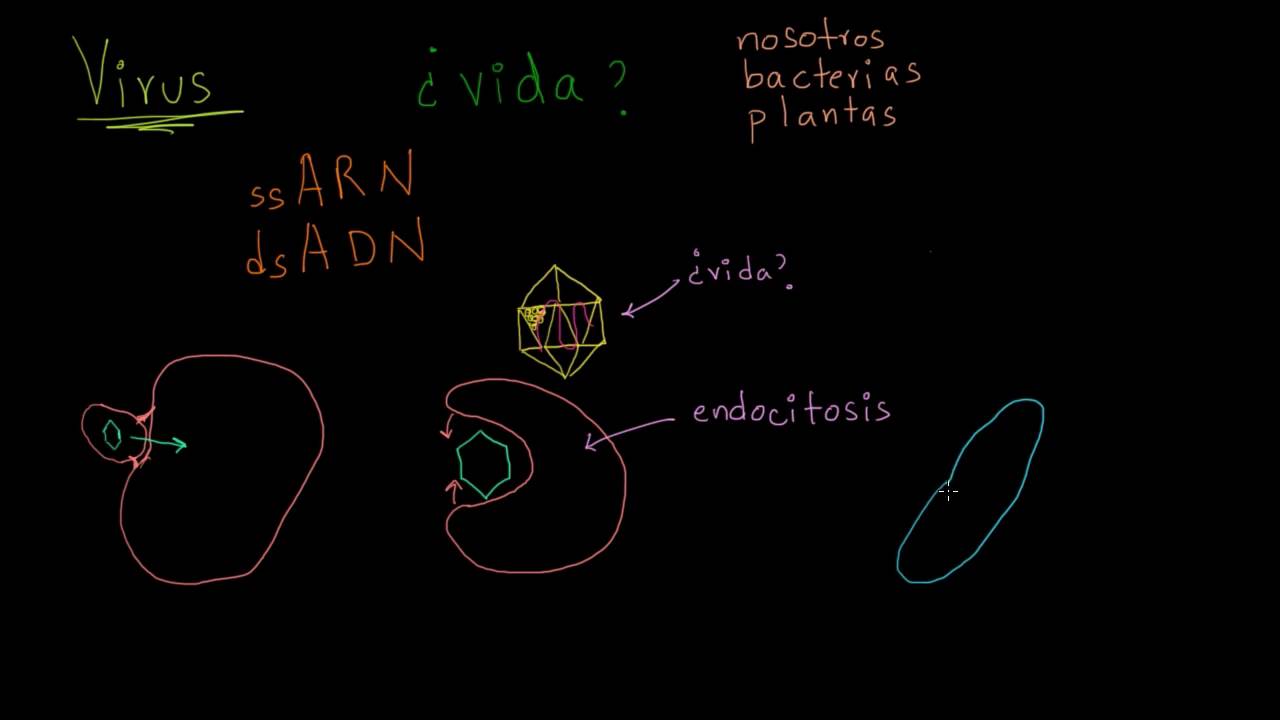 Virus
¿vida?
nosotros
bacterias
plantas
ssARN
dsADN
¿vida?
endocitosis